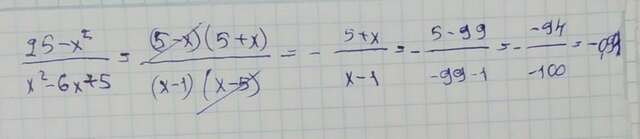 25-x² / x²-6x+5 = (5-x)(5+x) / (x-1)(x-5) = - 5+x / x-1 = - 5-99 / -99-1 = - -94 / -100 = -0,94